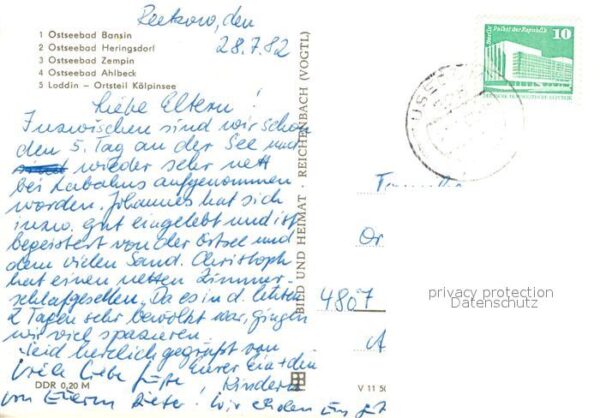 Reetzow, den
28.7.82
1 Ostseebad Bansin
2 Ostseebad Heringsdorf
3 Ostseebad Zempin
4 Ostseebad Ahlbeck
5 Loddin - Ortsteil Kölpinsee
Liebe Eltern!
Inzwischen sind wir schon
den 5. Tag an der See und
wieder sehr nett
bei Labahns aufgenommen
worden. Johannes hat sich
inzw. gut eingelebt und ist
begeistert von der Ostsee und
dem vielen Sand. Christoph
hat einen netten Zimmer-
schlafgesellen. Da es in d. letzten
2 Tagen sehr bewölkt war, gingen
wir viel spazieren.
Seid herzlich gegrüßt von
Eurer
Viele liebe Grüße,
von Eurem Dieter. Wir
DDR 0,20 M
BILD UND HEIMAT · REICHENBACH (VOGTL)
V 11 50
10
Berlin, Palast der Republik
DEUTSCHE DEMOKRATISCHE REPUBLIK
4807
privacy protection
Datenschutz